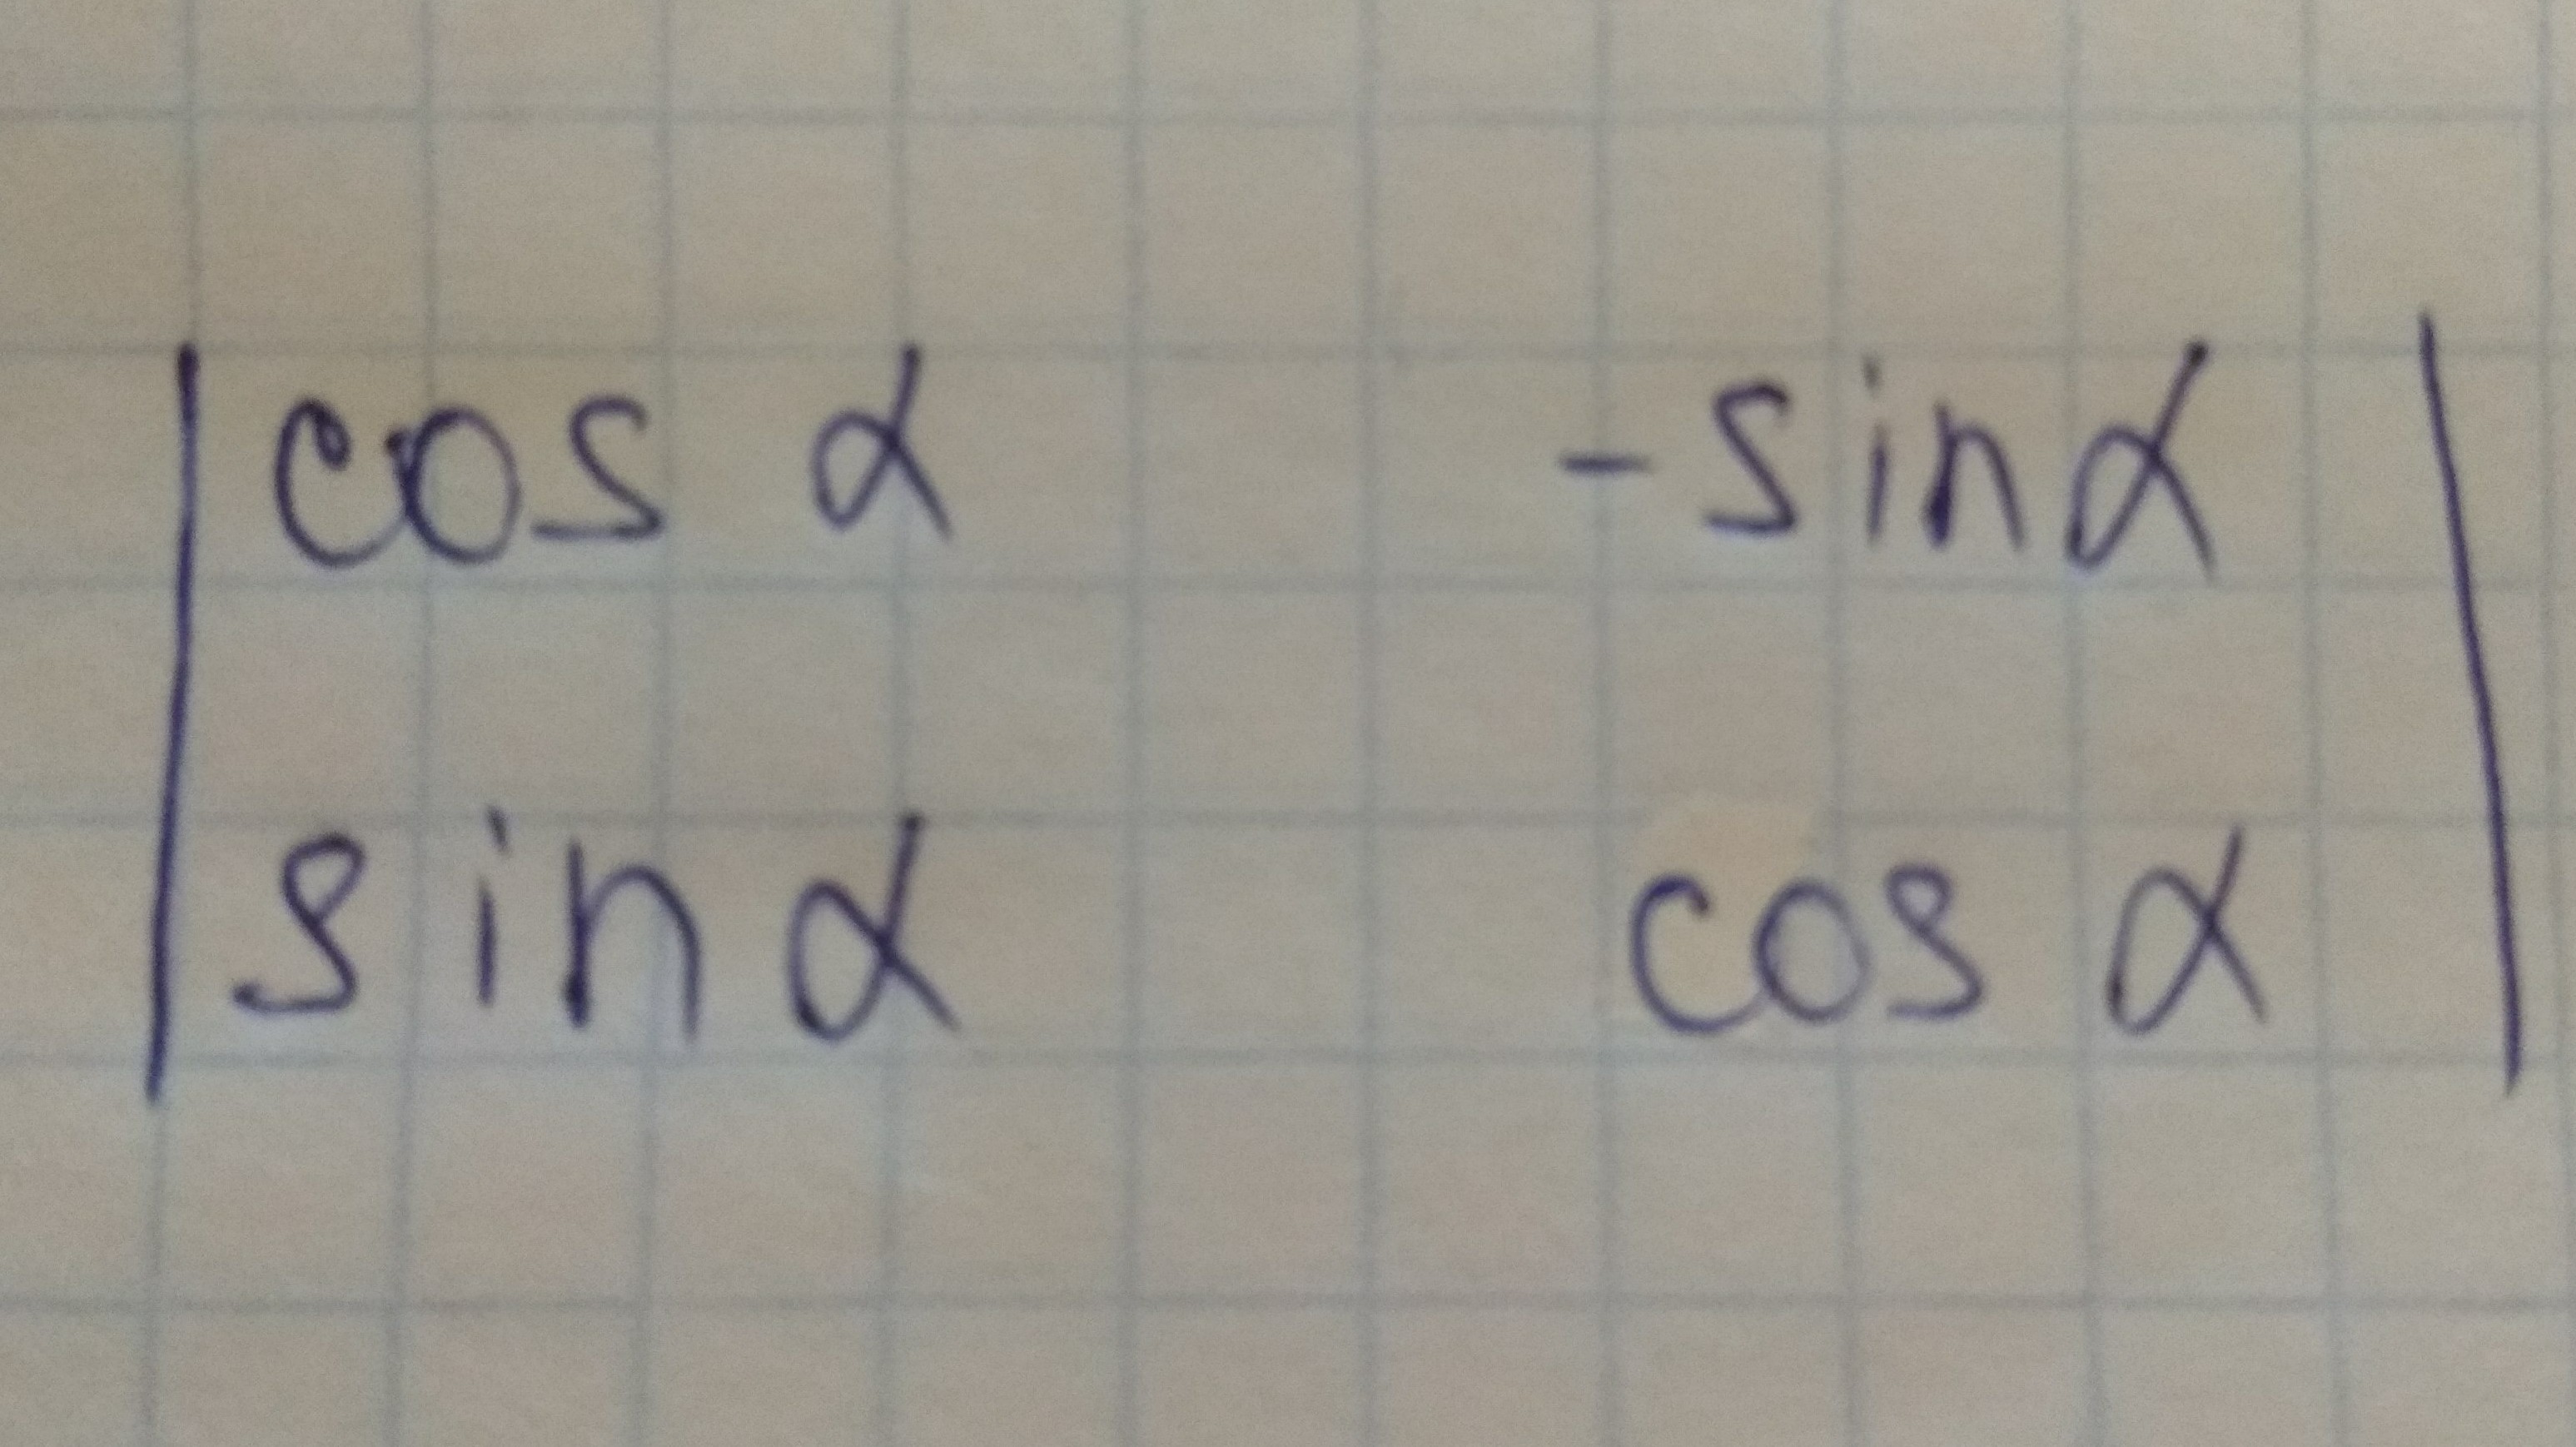 | cos α -sin α |
| sin α cos α |